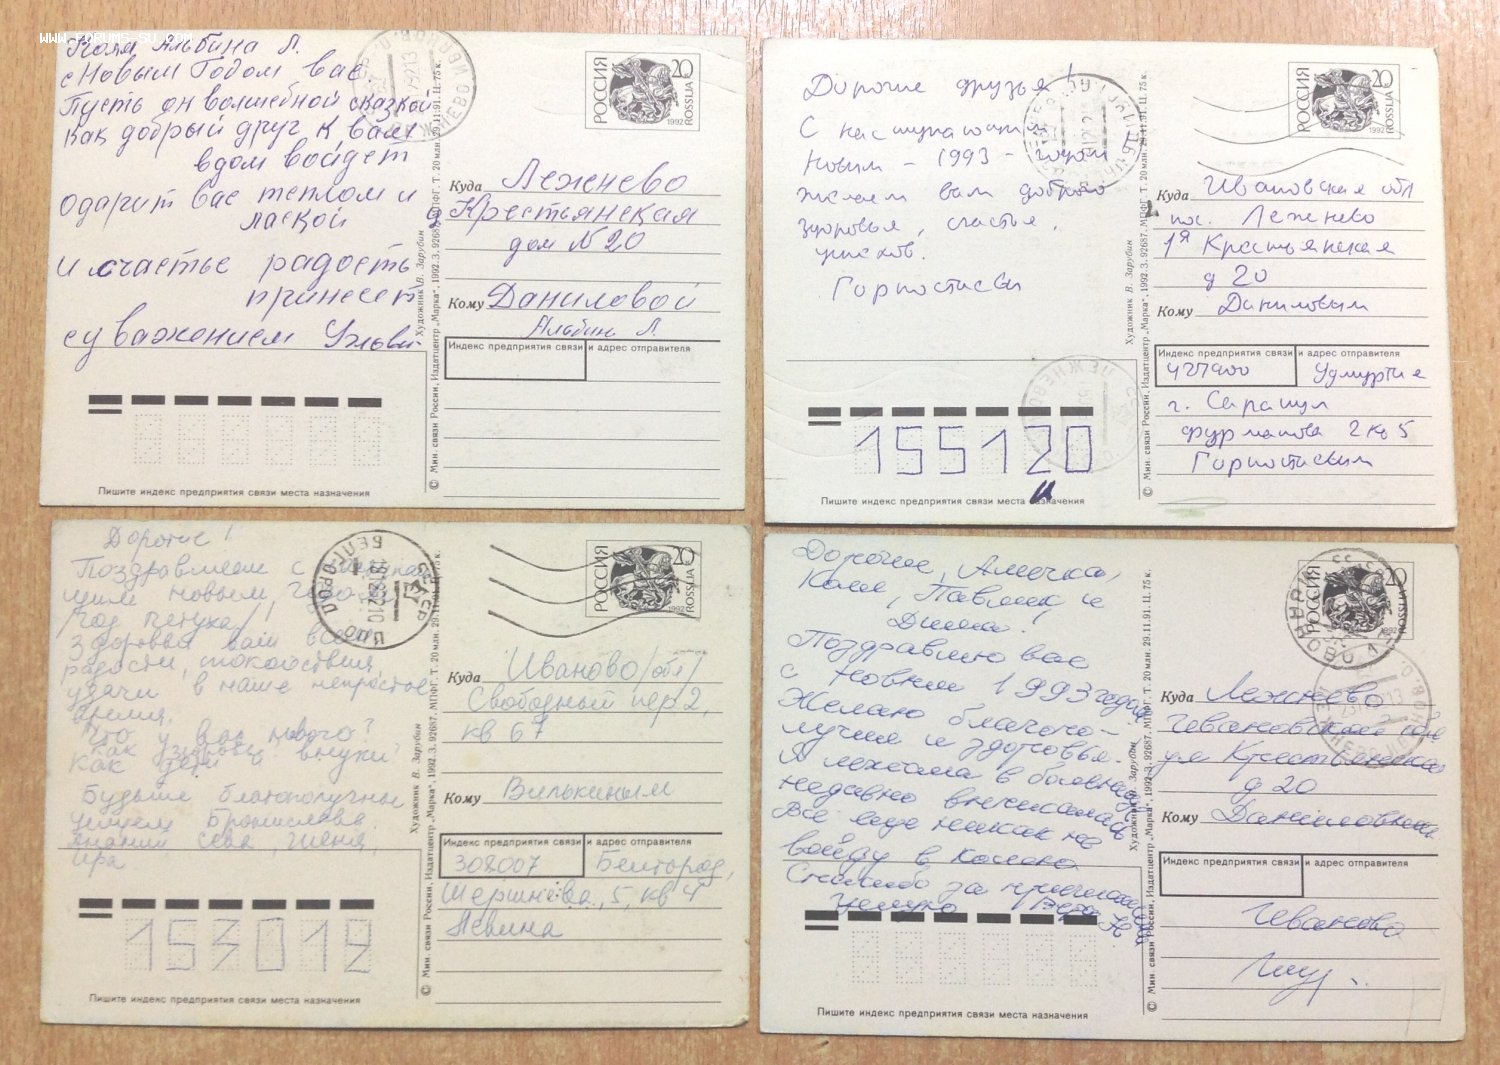 WWW.FORUMS-SU.COM
Коля Альбина Л.
с Новым Годом вас
Пусть он волшебной сказкой
Как добрый друг к вам
в дом войдет
одарит вас теплом и
лаской
и счастье радость
принесет
с уважением
РОССИЯ
20
1992
ROSSIJA
Куда Лежнево
Крестьянская
дом N 20
Кому Даниловой
Альбине Л.
Индекс предприятия связи и адрес отправителя
Пишите индекс предприятия связи места назначения
Художник В. Зарубин
© Мин. связи России, Издатцентр „Марка", 1992. З. 92687. МПФГ. Т. 20 млн. 29.11.91. Ц. 75 к.
Дорогие друзья!
С наступающим
Новым - 1993 - годом
Желаем вам доброго
здоровья, счастья,
успехов.
РОССИЯ
20
1992
ROSSIJA
Куда Ивановская обл
пос. Лежнево
1я Крестьянская
д 20
Кому Даниловым
Индекс предприятия связи и адрес отправителя
427900 Удмуртия
г. Сарапул
Фурманова 2 кв 5
155120
Пишите индекс предприятия связи места назначения
Художник В. Зарубин
© Мин. связи России, Издатцентр „Марка", 1992. З. 92687. МПФГ. Т. 20 млн. 29.11.91. Ц. 75 к.
Дорогие!
Поздравляем с
Новым Годом
/год петуха/!
Здоровья вам всем,
радости, спокойствия,
удачи в наше непростое
время.
Что у вас нового?
Как здоровье
Как дети внуки?
Будьте благополучны
РОССИЯ
20
1992
ROSSIJA
БЕЛГОРОД
Куда Иваново /обл/
Свободный пер 2,
кв 67
Кому Вилькиным
Индекс предприятия связи и адрес отправителя
308007 Белгород,
5, кв 4
Левина
153012
Пишите индекс предприятия связи места назначения
Художник В. Зарубин
© Мин. связи России, Издатцентр „Марка", 1992. З. 92687. МПФГ. Т. 20 млн. 29.11.91. Ц. 75 к.
Дорогие, Алечка,
Коля, Павлик и
Дима.
Поздравляю вас
с Новым 1993 годом
Желаю благопо-
лучия и здоровья.
Я лежала в больнице
недавно выписалась
Все еще никак не
войду в колею
Спасибо за приглашение
Целую
РОССИЯ
20
1992
ROSSIJA
Куда Лежнево
Ивановской обл
ул Крестьянская
д 20
Кому Даниловым
Индекс предприятия связи и адрес отправителя
Иваново
Пишите индекс предприятия связи места назначения
Художник В. Зарубин
© Мин. связи России, Издатцентр „Марка", 1992. З. 92687. МПФГ. Т. 20 млн. 29.11.91. Ц. 75 к.